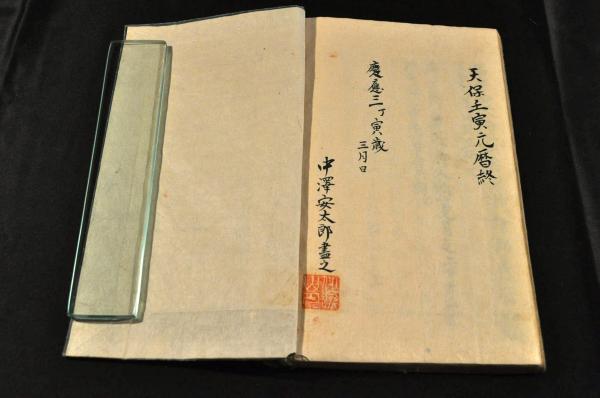 天保壬寅元暦終
慶應三丁寅歳
三月日
中澤安太郎盡之